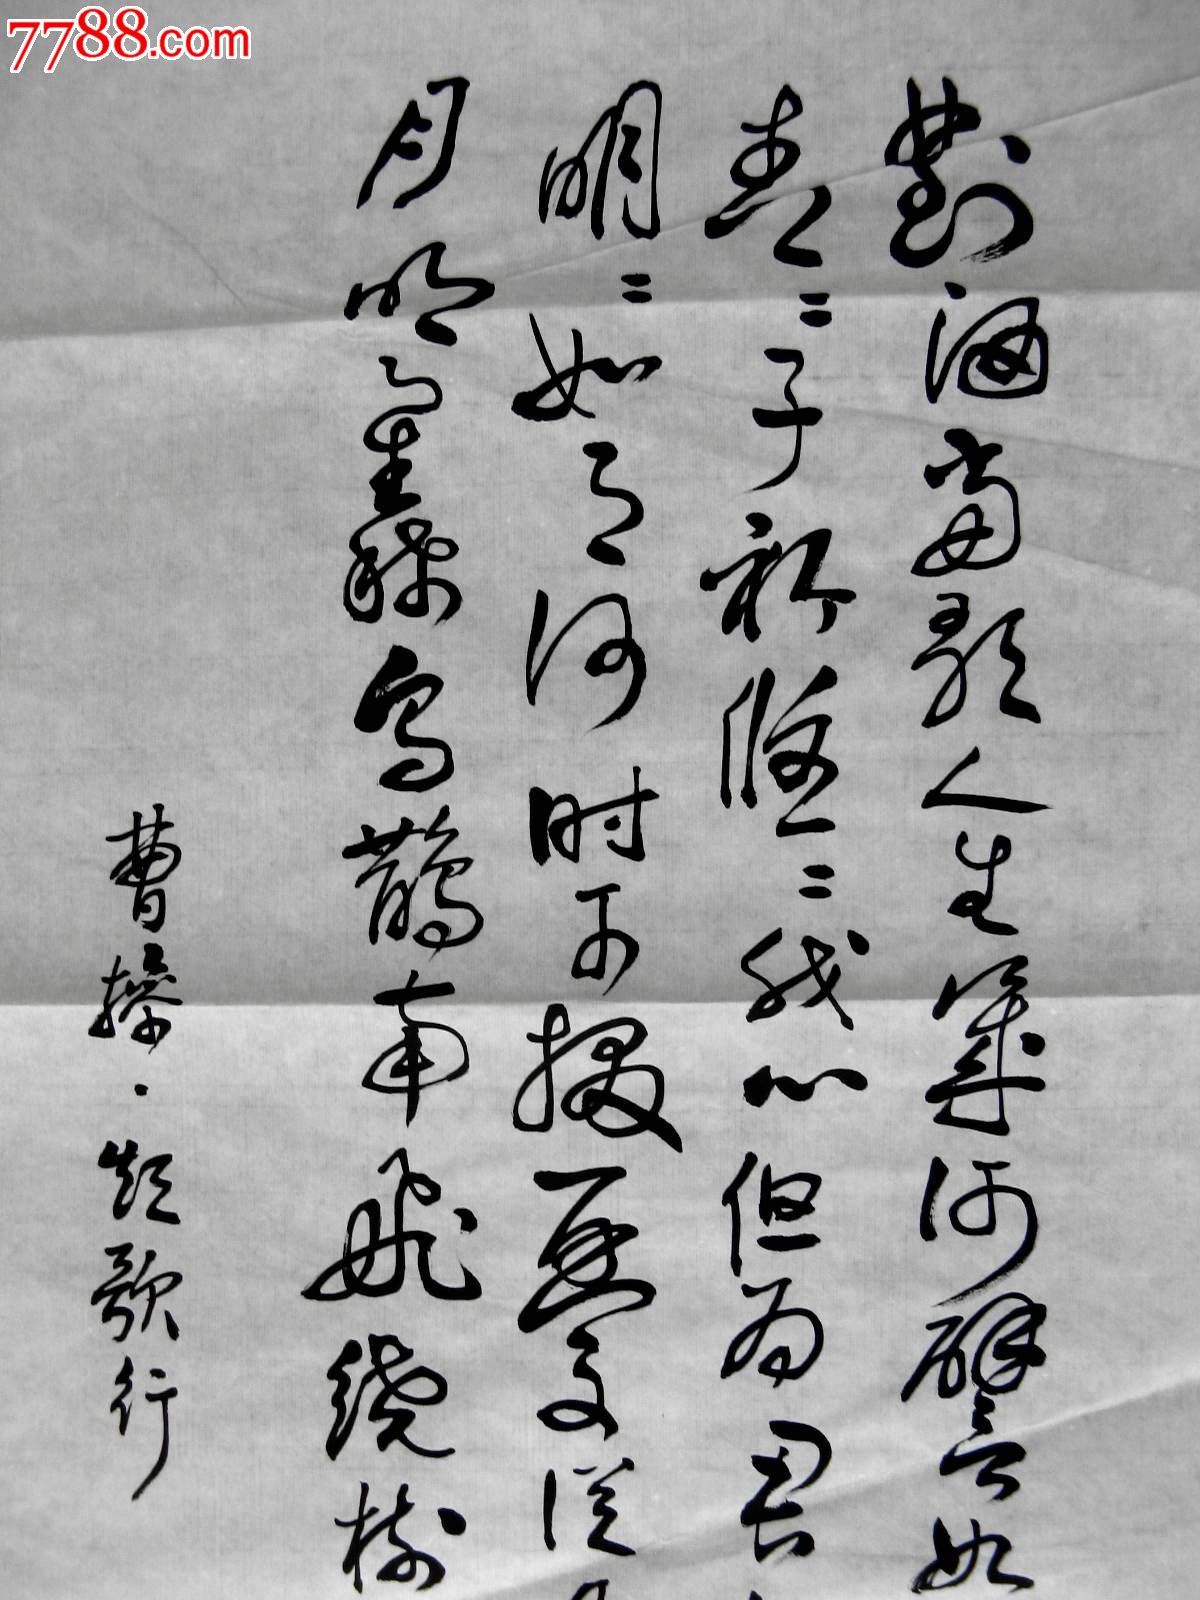 7788.com
對酒當歌人生幾何譬如
青〻子衿悠〻我心但為君
明〻如月何時可掇憂從
月明星稀烏鵲南飛繞樹
曹操·短歌行